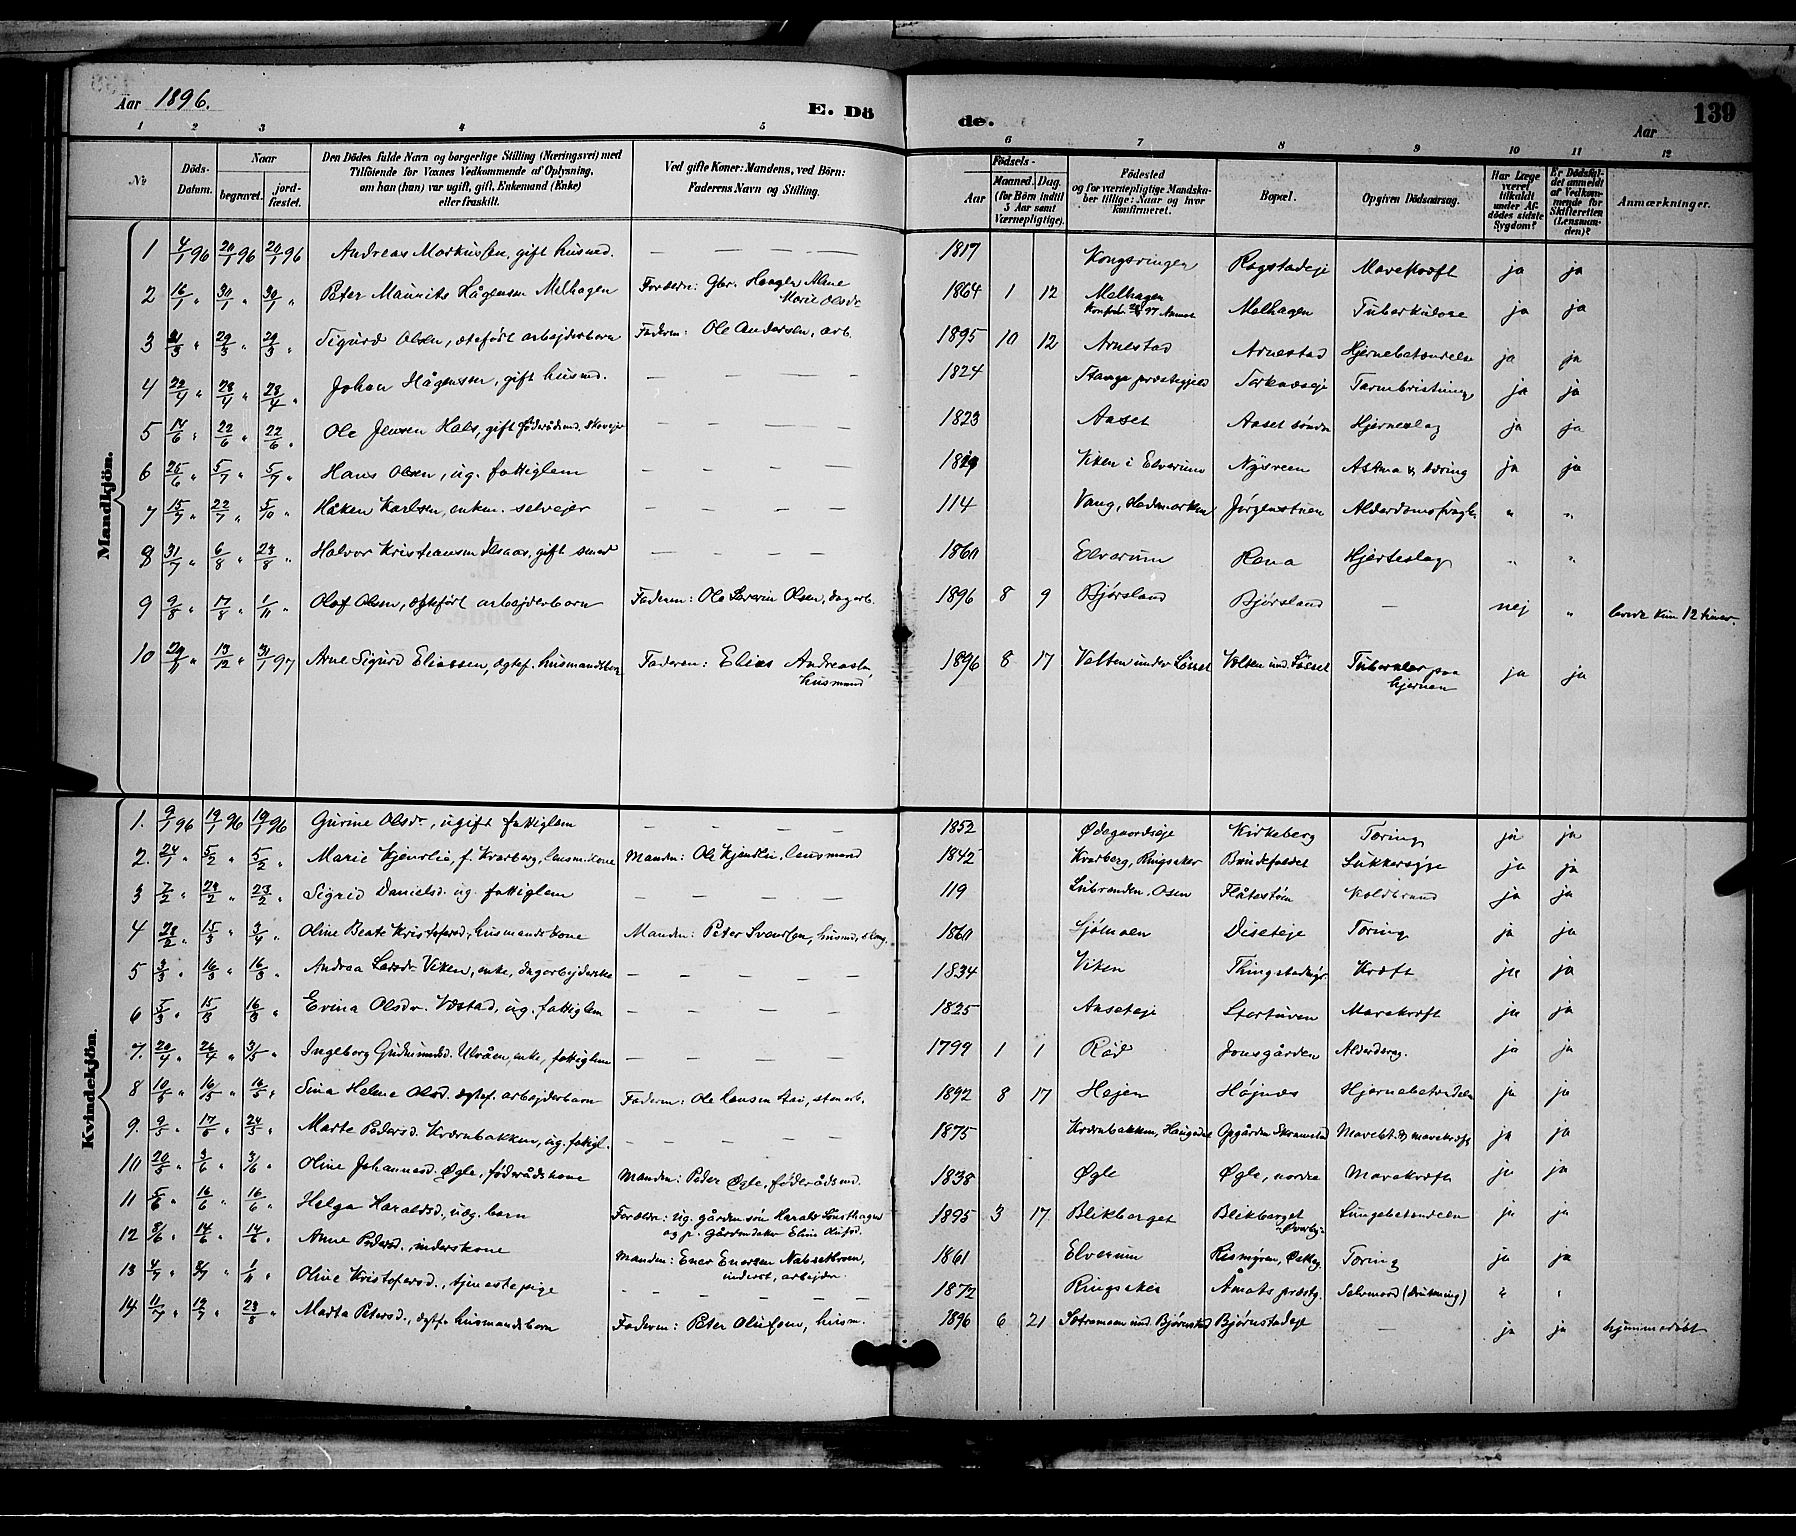 Aar 1896.
E. Dö
de.
139
Aar
1 2 3 4 5 6 7 8 9 10 11 12
No
Döds-Datum.
Naar
begravet.
jord-fæstet.
Den Dödes fulde Navn og borgerlige Stilling (Næringsvei) med
Tilföiende for Voxnes Vedkommende af Oplysning,
om han (hun) var ugift, gift, Enkemand (Enke)
eller fraskilt.
Ved gifte Koner: Mandens, ved Börn:
Faderens Navn og Stilling.
Födsels-
Aar
Maaned. Dag.
(for Börn indtil
5 Aar samt
Værnepligtige).
Födested
og for værnepligtige Mandska-
ber tillige: Naar og hvor
konfirmeret.
Bopæl.
Opgiven Dödsaarsag.
Har Læge
været
tilkaldt
under Af-
dödes sidste
Sygdom?
Er Dödsfal-
det anmeldt
af Vedkom-
mende for
Skifteretten
(Lensman-
den)?
Anmærkninger.
Mandkjön.
1 4/1 96 20/1 96 20/1 96 Andreas Markussen, gift husmd. — — — 1817 Kongsvingen Rogstadeje Mavekræft ja ja
2 16/1 " 30/1 " 30/1 " Peter Maurits Hågensen Melhagen Forældre: Gbr. Haagen Marie Olsdr 1864 1 12 Melhagen Melhagen Tuberkulose ja ja
3 " 29/3 " 29/3 " Sigurd Olsen, ægteført arbejderbarn Faderen: Ole Andersen, arb. 1895 10 12 Arnestad Arnestad Hjernebetændelse ja ja
4 22/4 " 28/4 " 28/4 " Johan Hågensen, gift husmd. — — — 1824 Stange præstegjeld Torknæseje Tarmbristning ja ja
5 17/6 " 22/6 " 22/6 " Ole Jensen Hals, gift föderådsmd, skovejer — — — 1823 Aaset Aaset søndre Hjerneslag ja ja
6 25/6 " 5/7 " 5/7 " Hans Olsen, ug. fattiglem — — — Viken i Elverum Nysveen Astma & tæring ja ja
7 15/7 " 22/7 " 5/10 " Håken Karlsen, enkem. selvejer — — — 114 Vang, Hedemarken Jørgenstuen Alderdomssvaghed " "
8 31/7 " 6/8 " 23/8 " Halvor Kristiansen gift smed — — — 1860 Elverum Rena Hjerteslag " "
9 9/8 " 17/8 " 1/11 " Olaf Olsen, ægteført arbejderbarn Faderen: Ole Severin Olsen, dagarb. 1896 8 9 Bjørsland Bjørsland — nej " levede kun 12 timer.
10 29/11 " 13/12 " 31/1 97 Arne Sigurd Eliassen, ægtef. husmandsbarn Faderen: Elias Andreassen husmand 1896 8 17 Velten under Løsset Velten und. Løsset Tuberkler paa hjernen ja ja
Kvindekjön.
1. 9/1 96 19/1 96 19/1 96 Gurine Olsdr., ugift fattiglem — — — 1852 Ødegaardseje Kirkeberg Tæring ja ja
2. 24/1 " 5/2 " 5/2 " Marie Kjendlie, f. Kvarberg, lensmdkone Manden: Ole Kjendlie, lensmand 1842 Kvarberg, Ringsaker Bondefaldet Sukkersyge ja ja
3 7/2 " 23/2 " 23/2 " Sigrid Danielsd. ug. fattiglem — — — 119 Osen Flåtestøen Koldbrand ja ja
4 28/2 " 15/3 " 3/4 " Oline Beate Kristofersd., husmandskone Manden: Peter Svendsen, husmd, 1860 Sjømoen Diseteje Tæring ja ja
5 3/3 " 16/3 " 16/3 " Andrea Larsdr. Viken, enke, dagarbejderske — — — 1834 Viken Thingstadeje Kræft ja ja
6 5/3 " 15/3 " 16/3 " Evina Olsdr. Næstad, ug. fattiglem — — — 1825 Aaseteje Stortuven Mavekræft ja ja
7. 20/4 " 26/4 " 3/5 " Ingeborg Gudmundsd. Ulvåen, enke, fattiglem — — — 1799 1 1 Rød Jonsgården Alderdsvag. ja ja
8 10/5 " 16/5 " 16/5 " Sina Helene Olsd. ægtef. arbejderbarn Faderen: Ole Hansen Stai, stenarb. 1892 8 17 Højen Højnæs Hjernebetændelse ja ja
9. 9/5 " 17/5 " 24/5 " Marte Pedersd. Kværnbakken, ug. fattigl. — — — 1875 Kværnbakken, Haugedal Opgården Skramstad Mavebl. & mavekræft ja ja
10 20/5 " 3/6 " 3/6 " Oline Johannesd. Øgle, føderådskone Manden: Peder Øgle, føderådsmd. 1838 Øgle Øgle, nordre Mavekræft ja ja
11 5/6 " 16/6 " 16/6 " Helga Haraldsd., uæg. barn Forældre: ug. gårdmdssøn Harald og p. gårdmdsdatter Eline Olufsd. 1895 3 17 Blikberget Blikberget Lungebetændelse ja ja
12 8/6 " 14/6 " 14/6 " Anne Pedersd. inderskone Manden: Ener Enersen Næbsethroen, inderst, arbejder. 1861 Elverum Rismyren, Tæring ja ja
13 4/7 " 8/7 " 1/11 " Oline Kristofersd., tjenestepige — — — 1872 Ringsaker Åmots præstg. Selvmord (drukning) " "
14 11/7 " 19/7 " 23/8 " Marta Petersd., ægtef. husmandsbarn Faderen: Peter Olufsen, husm. 1896 6 21 Sætremoen und. Bjørnstad Bjørnstadejet — ja ja hjemmedøbt